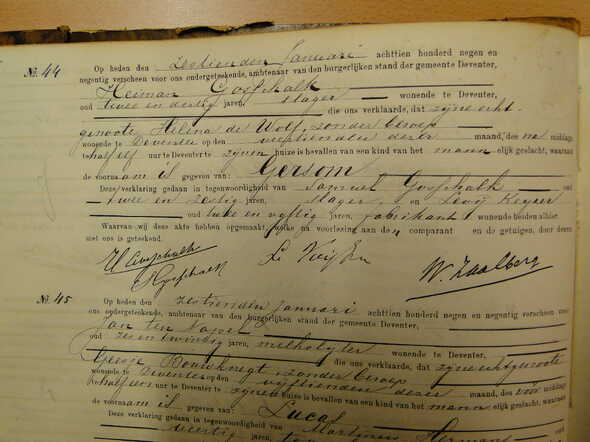 No. 44
Op heden den zestienden Januari achttien honderd negen en
negentig verscheen voor ons ondergeteekende, ambtenaar van den burgerlijken stand der gemeente Deventer,
Heiman Gosschalk
oud twee en dertig jaren, slager wonende te Deventer,
die ons verklaarde, dat zijne echt-
genoote Helena de Wolf, zonder beroep
wonende te Deventer op den veertienden dezer maand, des na middags
te half elf ure te Deventer te zijnen huize is bevallen van een kind van het mannelijk geslacht, waaraan
de voornaam is gegeven van: Gersom
Deze verklaring gedaan in tegenwoordigheid van Samuel Gosschalk oud
twee en zestig jaren, slager, en Levij Keyzer
oud twee en vijftig jaren, fabrikant wonende beiden alhier.
Waarvan wij deze akte hebben opgemaakt, welke na voorlezing aan de comparant en de getuigen, door dezen
met ons is geteekend.
H Gosschalk
S Gosschalk
W. Zaalberg
No. 45
Op heden den zestienden Januari achttien honderd negen en negentig verscheen voor
ons ondergeteekende, ambtenaar van den burgerlijken stand der gemeente Deventer,
Jan ten Napel
oud zes en twintig jaren, melkslijter wonende te Deventer,
die ons verklaarde, dat zijne echtgenoote
Bouwknegt, zonder beroep
wonende te Deventer op den vijftienden dezer maand, des voor middags
te half een ure te Deventer te zijnen huize is bevallen van een kind van het mannelijk geslacht, waaraan
de voornaam is gegeven van: Lucas
Deze verklaring gedaan in tegenwoordigheid van Martinus Hermans
veertig jaren,